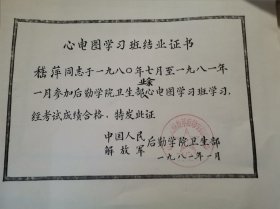 心电图学习班结业证书
嵇萍同志于一九八〇年七月至一九八一年
一月参加后勤学院卫生部业余心电图学习班学习,
经考试成绩合格,特发此证
中国人民
解放军
后勤学院卫生部
一九八一年一月